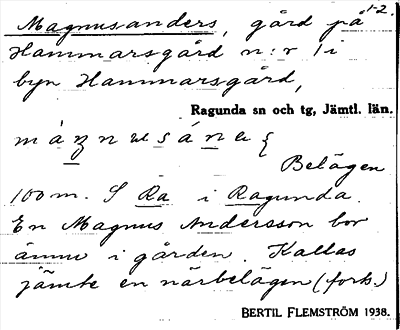 1-2.
Magnusanders, gård på
Hammarsgård n:r 1 i
byn Hammarsgård,
Ragunda sn och tg, Jämtl. län.
Belägen
100 m. S Ra i Ragunda.
En Magnus Andersson bor
ännu i gården. Kallas
jämte en närbelägen (forts.)
BERTIL FLEMSTRÖM 1938.